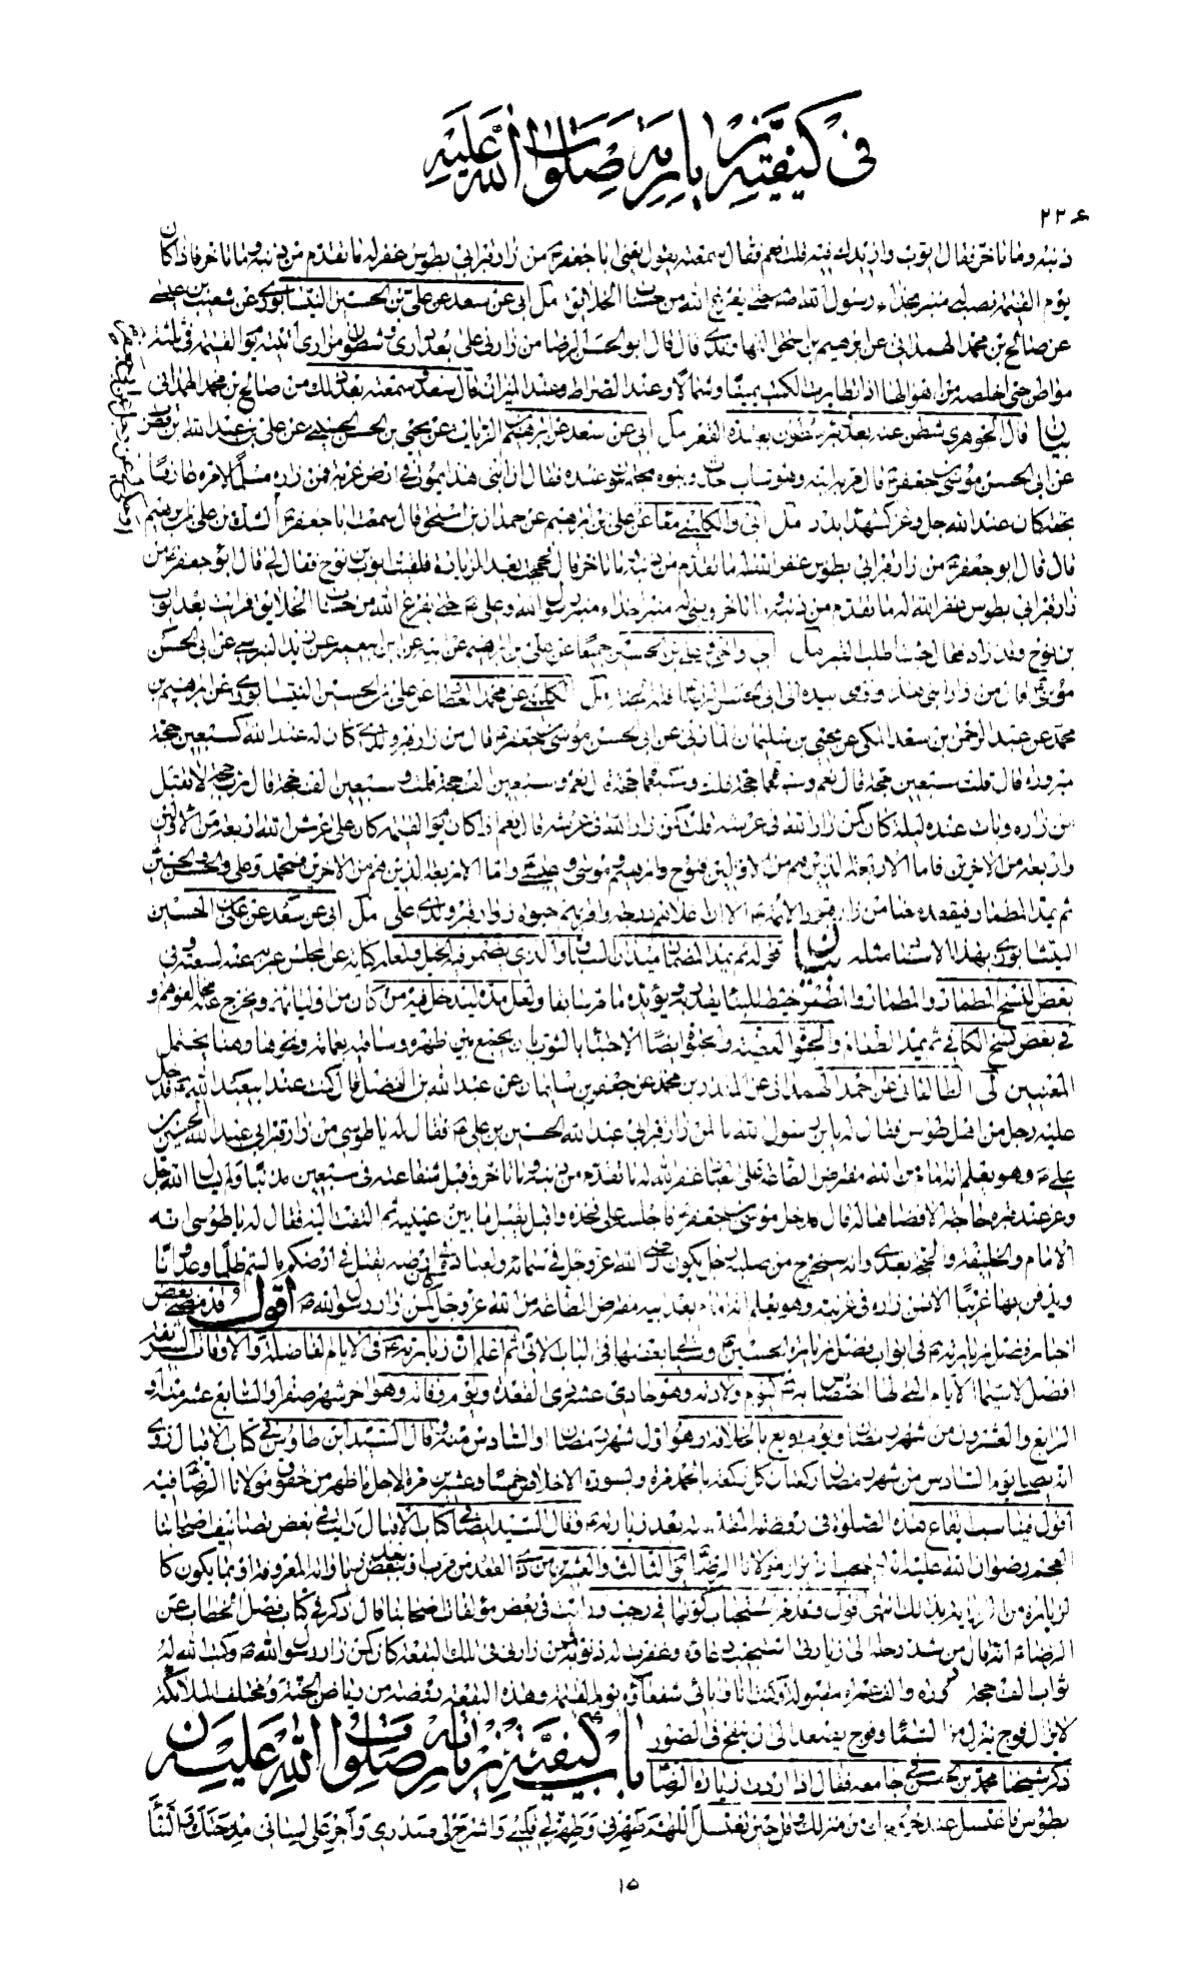 في كيفية زيارته صلوات الله عليه
٢٢٦
ذنبه وما تأخر فقال ايوب وازيدك فيه قلت نعم فقال سمعته يقول يعني ابا جعفر ع من زار قبر ابي بطوس غفر له ما تقدم من ذنبه وما تاخر فاذا كان
يوم القيمة نصب له منبر بحذاء رسول الله ص حتى يفرغ الله من حساب الخلائق مل ابي عن سعد عن علي بن الحسين النيسابوري عن شعيب بن عيسى
عن صالح بن محمد الهمداني عن ابرهيم بن اسحق النهاوندي قال قال ابو الحسن الرضا من زارني على بعد داري وشطون مزاري اتيته يوم القيمة في ثلثة
مواطن حتى اخلصه من اهوالها اذا تطايرت الكتب يمينا وشمالا وعند الصراط وعند الميزان قال سعد وسمعته بعد ذلك من صالح بن محمد الهمداني
بيان قال الجوهري شطن عنه بعد بئر شطون بعيدة القعر مل ابي عن سعد عن ابرهيم الزيات عن يحيى بن الحسن الحسيني عن علي بن عبد الله بن قطرب
عن ابي الحسن موسى بن جعفر ع قال مر به ابنه وهو شاب حدث وبنوه مجتمعون عنده فقال ان ابني هذا يموت في ارض غربة فمن زاره مسلما لامره عارفا
بحقه كان عند الله جل وعز كشهداء بدر مل ابي والكليني معا عن علي بن ابرهيم عن حمدان بن اسحق قال سمعت ابا جعفر ع
قال قال ابو جعفر ع من زار قبر ابي بطوس غفر الله له ما تقدم من ذنبه وما تاخر قال فحججت بعد الزيارة فلقيت ايوب بن نوح فقال لي قال ابو جعفر ع من
زار قبر ابي بطوس غفر الله له ما تقدم من ذنبه وما تاخر وبنى له منبرا حذاء منبر رسول الله وعلي ع حتى يفرغ الله من حساب الخلائق فرأيت بعد ايوب
بن نوح وقد زار فقال جئت اطلب المنبر مل ابي واخي وعلي بن الحسين جميعا عن علي بن ابرهيم عن ابيه عن ابي الحسن
موسى ع قال من زار ابني هذا واومى بيده الى ابي الحسن الرضا فله الجنة مل الكليني عن محمد العطار عن علي بن الحسين النيسابوري عن ابرهيم بن
محمد عن عبد الرحمن بن سعد المكي عن يحيى بن سليمان المازني عن ابي الحسن موسى بن جعفر ع قال من زار قبر ولدي كان له عند الله كسبعين حجة
مبرورة قال قلت سبعين حجة قال نعم وسبعمائة حجة قلت وسبعمائة حجة قال نعم وسبعين الف حجة قلت وسبعين الف حجة قال رب حجة لا تقبل
من زاره وبات عنده ليلة كان كمن زار الله في عرشه قلت كمن زار الله في عرشه قال نعم اذا كان يوم القيمة كان على عرش الله اربعة من الاولين
واربعة من الاخرين فاما الاربعة الذين هم من الاولين فنوح وابرهيم وموسى وعيسى واما الاربعة الذين هم من الاخرين فمحمد وعلي والحسن والحسين
ثم يمد المطمار فيقعد معنا من زار قبور الائمة ع الا ان اعلاهم درجة واقربهم حبوة زوار قبر ولدي علي مل ابي عن سعد عن علي بن الحسين
النيسابوري بهذا الاسناد مثله بيان قوله ثم يمد المضمار ميدان السباق والذي يضمر فيه الخيل ولعله كناية عن مجلس عرسه عنه لسعته وفي
بعض النسخ المطمار والمطمار والطمر خيط للبناء يقدر به ويؤيده ما مر سابقا ولعل مده ليدخل فيه من كان من اوليائه ويخرج عنه المخالفون وهم و
في بعض نسخ الكافي ثم يمد الطعام والحبو العطية والحبوة ايضا الاحتباء بالثوب بان يجمع بين ظهره وساقيه بعمامة ونحوها وهنا يحتمل
المعنيين لي الطالقاني عن احمد الهمداني عن المنذر بن محمد عن جعفر بن سليمان عن عبد الله بن الفضل قال كنت عند ابي عبد الله ع فدخل
عليه رجل من اهل طوس فقال له يا بن رسول الله ما لمن زار قبر ابي عبد الله الحسين بن علي ع فقال له يا طوسي من زار قبر ابي عبد الله الحسين بن
علي ع وهو يعلم انه امام من الله مفترض الطاعة على العباد غفر الله له ما تقدم من ذنبه وما تاخر وقبل شفاعته في سبعين مذنبا ولم يسأل الله جل
وعز عند قبره حاجة الا قضاها له قال فدخل موسى بن جعفر ع فاجلسه على فخذه واقبل يقبل ما بين عينيه ثم التفت اليه فقال له يا طوسي انه
الامام والخليفة والحجة بعدي وانه سيخرج من صلبه رجل يكون رضى الله عز وجل في سمائه ولعباده في ارضه يقتل في ارضكم بالسم ظلما وعدوانا
ويدفن بها غريبا الا فمن زاره في غربته وهو يعلم انه امام بعد ابيه مفترض الطاعة من الله عز وجل كان كمن زار رسول الله ص اقول وقد مضى بعض
اخبار فضل زيارته ع في ابواب فضل زيارة الحسين ع وسيأتي بعضها في الباب الاتي ثم اعلم ان زيارته ع في الايام الفاضلة والاوقات الشريفة
افضل لا سيما الايام التي لها اختصاص به ع كيوم ولادته وهو حادي عشر ذي القعدة ويوم وفاته وهو اخر شهر صفر او السابع عشر منه او
الرابع والعشرون من شهر رمضان ويوم بويع بالخلافة وهو اول شهر رمضان او السادس منه وقال السيد ابن طاوس في كتاب الاقبال روي
انه يصلى يوم السادس من شهر رمضان ركعتان كل ركعة بالحمد مرة وبسورة الاخلاص خمسا وعشرين مرة لاجل ما ظهر من حقوق مولانا الرضا فيه
اقول فيناسب ايقاع هذه الصلوة في روضته المقدسة بعد زيارته ع وقال السيد ايضا في كتاب الاقبال رايت في بعض تصانيف اصحابنا
العجم رضوان الله عليهم انه يستحب ان يزار مولانا الرضا ع يوم الثالث والعشرين من ذي القعدة من قرب او بعد ببعض زياراته المعروفة او بما يكون كا
لزيارة من الرواية بذلك انتهى اقول وقد مر استحباب كونها في رجب ورايت في بعض مؤلفات اصحابنا قال ذكر في كتاب فصل الخطاب عن
الرضا ع انه قال من شد رحله الى زيارتي استجيب دعاؤه وغفرت له ذنوبه فمن زارني في تلك البقعة كان كمن زار رسول الله ص وكتب الله له
ثواب الف حجة مبرورة والف عمرة مقبولة وكنت انا وابائي شفعاؤه يوم القيمة وهذه البقعة روضة من رياض الجنة ومختلف الملائكة
لا يزال فوج ينزل من السماء وفوج يصعد الى ان ينفخ في الصور
باب كيفية زيارته صلوات الله عليه
ذكر شيخنا محمد بن الحسن في جامعه فقال اذا اردت زيارة الرضا
بطوس فاغتسل عند خروجك من منزلك وقل حين تغتسل اللهم طهرني وطهر لي قلبي واشرح لي صدري واجر على لساني مدحتك والثناء
١٥